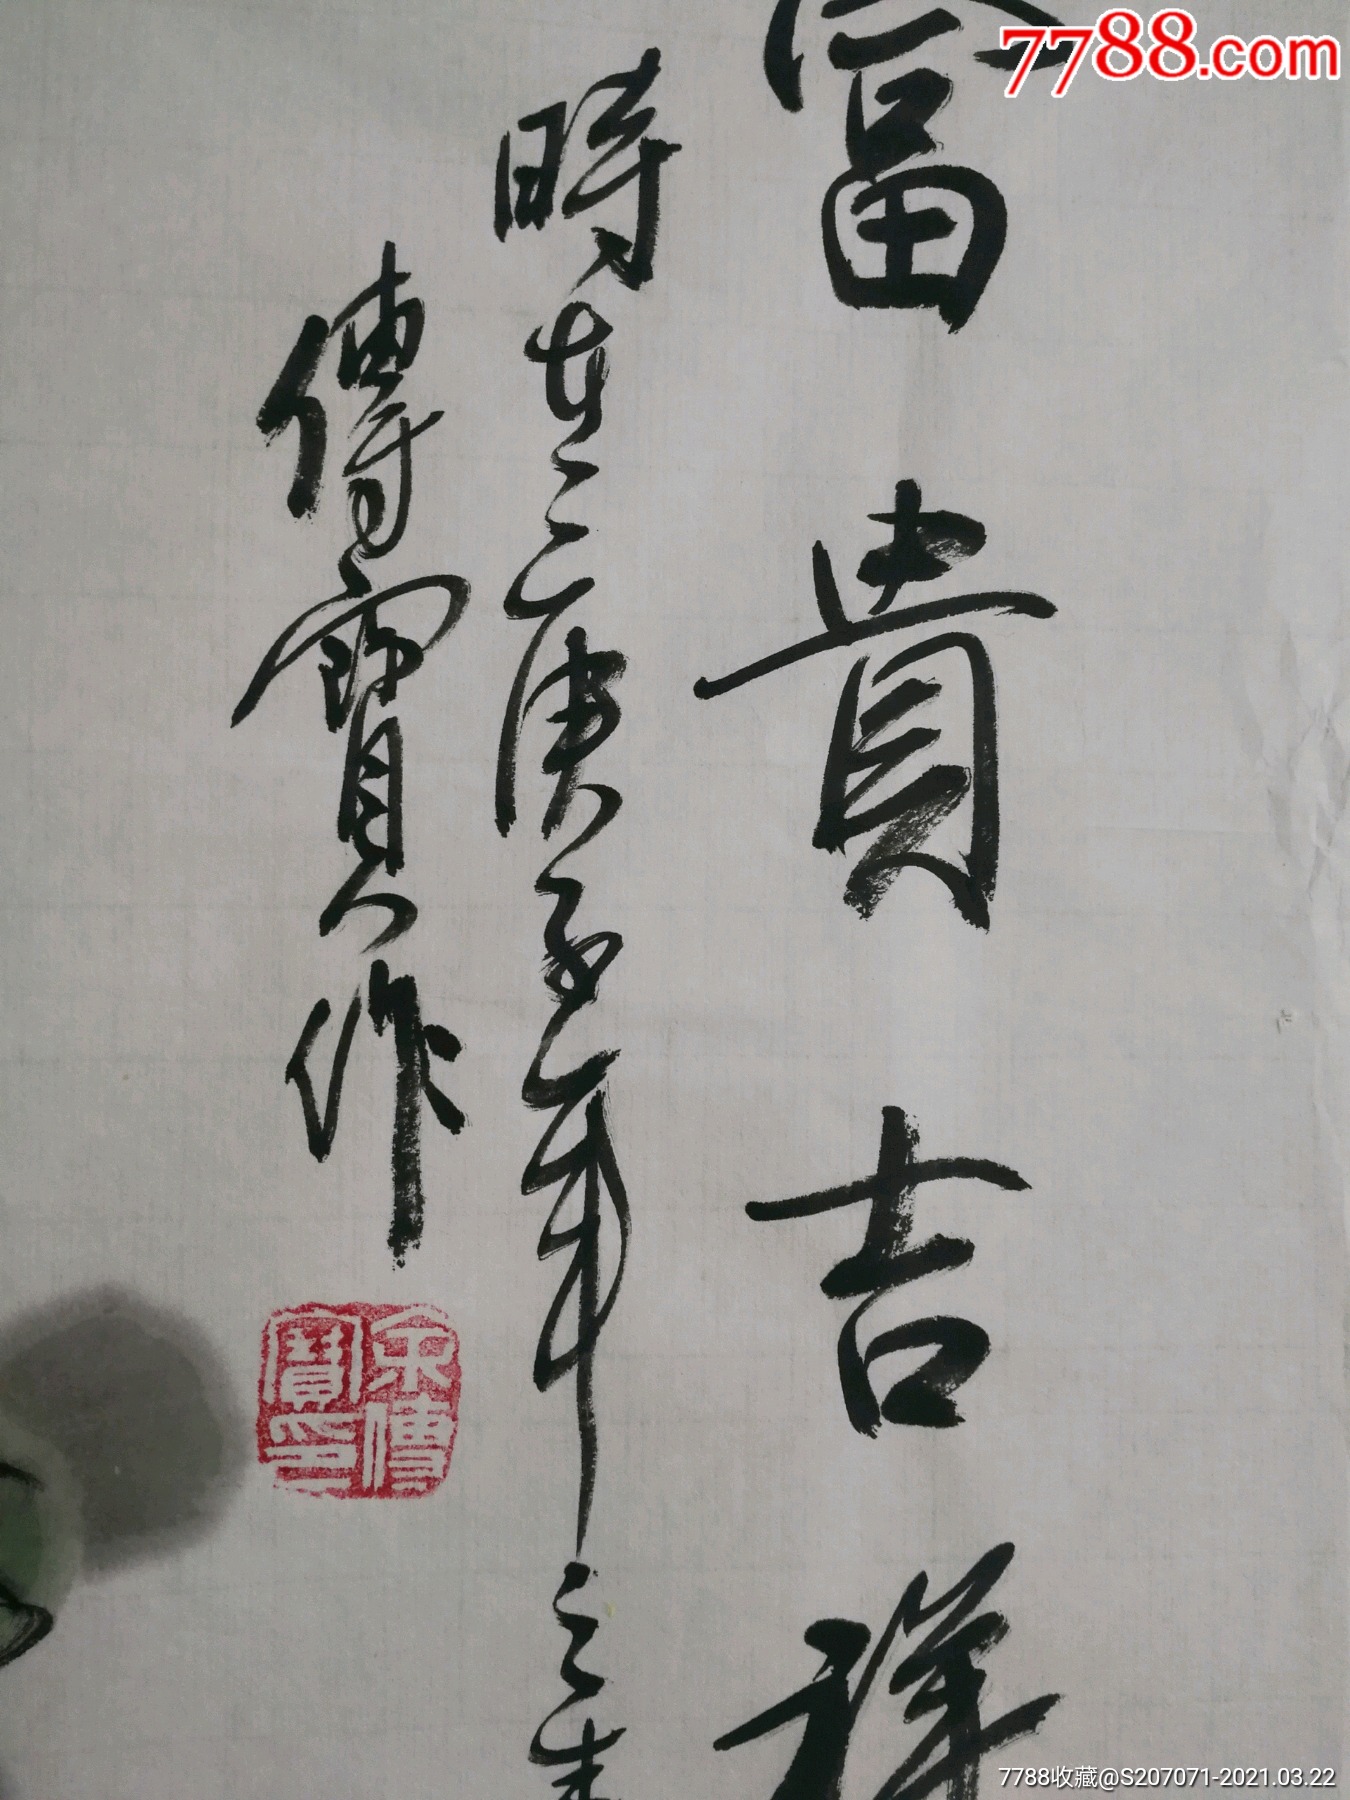 7788.com
富貴吉祥
時在二〇庚子年之春
傅寶作
余傅寶印
7788收藏@S207071-2021.03.22